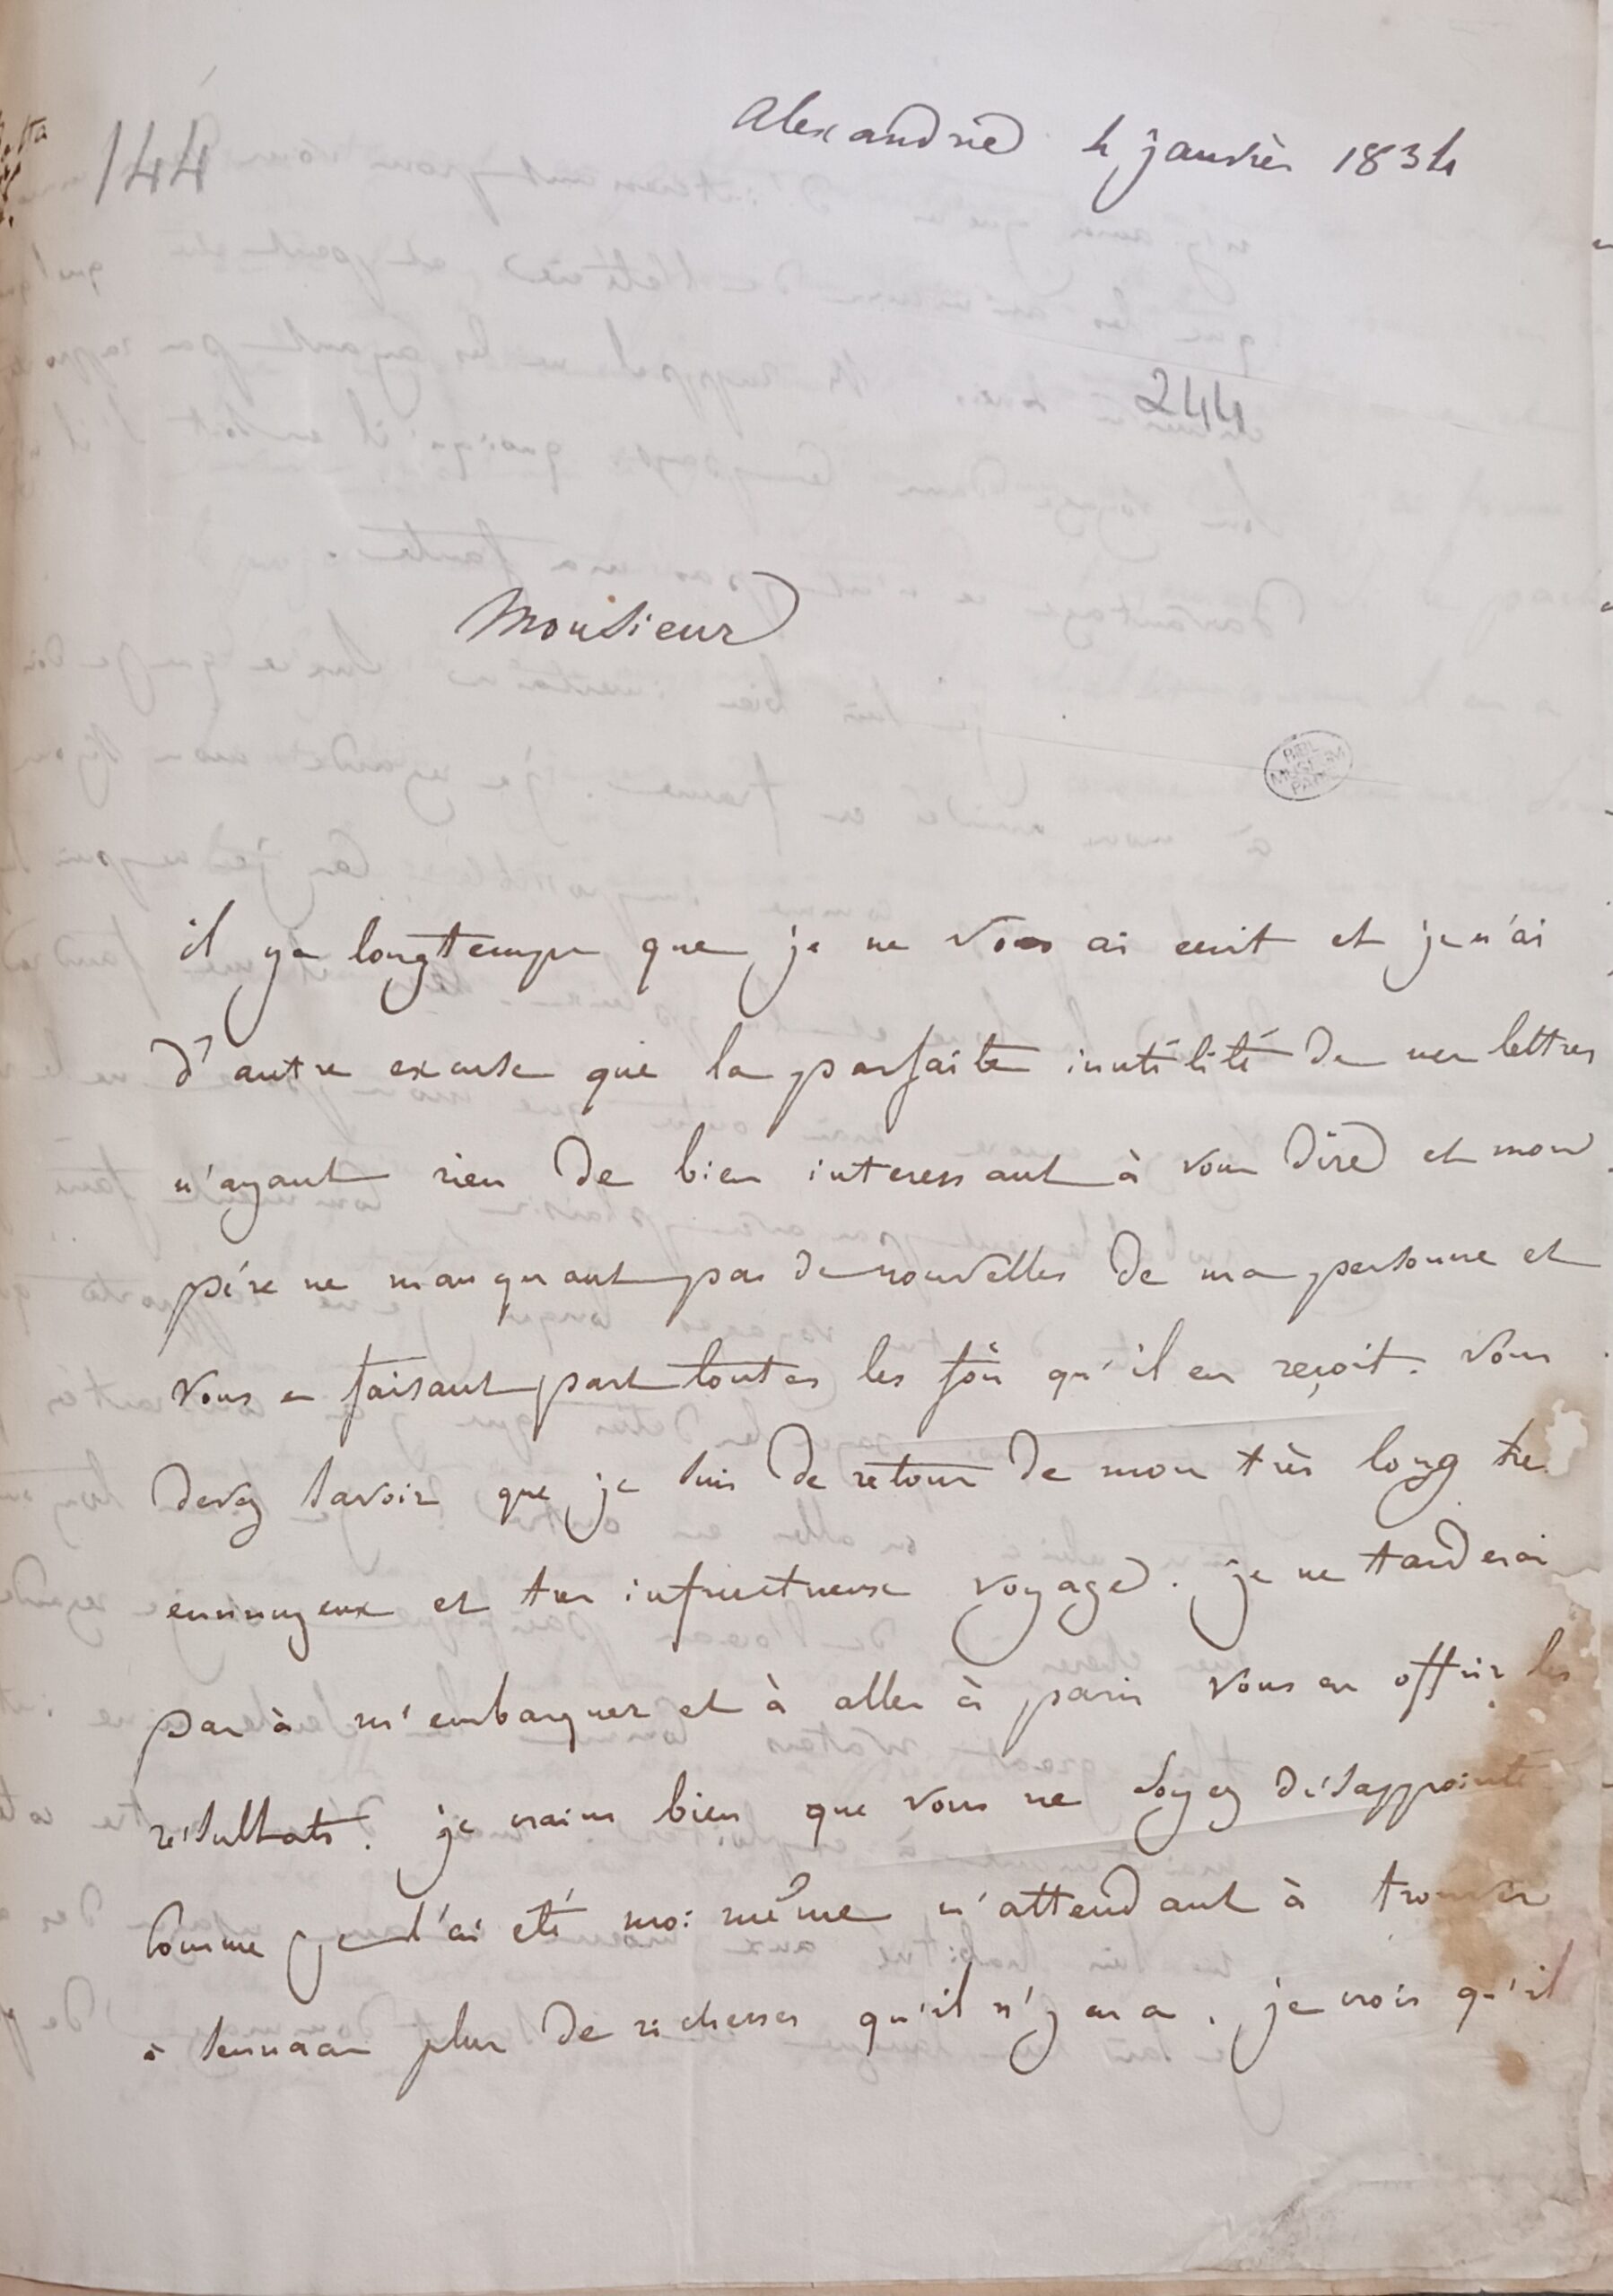 144
Alexandrie 4 janvièr 1834
244
Monsieur
BIBL. MUSEUM PARIS
il y a longtemps que je ne vous ai ecrit et je n'ai
d'autre excuse que la parfaite inutilité de mes lettres
n'ayant rien de bien interessant à vous dire et mon
père ne manquant pas de nouvelles de ma personne et
vous en faisant part toutes les fois qu'il en reçoit. Vous
devez savoir que je suis de retour de mon très long tres
ennuyeux et tres infructueux voyage. je ne tarderai
pas à m'embarquer et à aller à paris vous en offrir les
résultats. je crains bien que vous ne soyez désappointé
comme je l'ai eté moi même m'attendant à trouver
à sennaar plus de richesses qu'il n'y en a. je crois qu'il